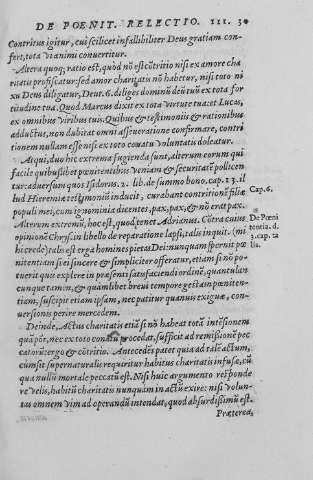 DE POENIT. RELECTIO. III. 3
Contritus igitur, cui scilicet infallibiliter Deus gratiam con-
fert, tota vi animi conuertitur.
Altera quoq; ratio est, quòd nõ est cõtritio nisi ex amore cha
ritatis proficiscatur: sed amor charitatis nõ habetur, nisi toto ni
xu Deus diligatur, Deut. 6. diliges dominũ deũ tuũ ex tota for
titudine tua. Quod Marcus dixit ex tota virtute tua: et Lucas,
ex omnibus viribus tuis. Quibus & testimonijs & rationibus
adductus, non dubitat omni asseueratione confirmare, contri
tionem nullam esse nisi ex toto conatu voluntatis doleatur.
Atqui, duo hic extrema fugienda sunt, alterum eorum qui
facile quibuslibet pœnitentibus veniam & securitatẽ pollicen
tur: aduersum quos Isidorus. 2. lib. de summo bono. cap. 13. il
lud Hieremiæ testimoniũ inducit, curabant contritionẽ filiæ
populi mei, cum ignominia dicentes, pax, pax, & nõ erat pax.
Cap. 6.
Alterum extremũ, hoc est, quod tenet Adrianus. Cõtra cuius
opinionẽ Chrys. in libello de reparatione lapsi, talis inquit. (mi
hi crede) talis est erga homines pietas Dei: nunquam spernit pœ
nitentiam si ei sincere & simpliciter offeratur, etiam si nõ po-
tuerit quis explere in præsenti satisfaciendi ordinẽ, quantulan
cunque tamen, & quamlibet breui tempore gestam pœniten-
tiam, suscipit etiam ipsam, nec patitur quamuis exiguæ, con-
uersionis perire mercedem.
De Pœni
tentia. d.
3. cap. ta
lis.
Deinde, Actus charitatis etiã si nõ habeat totã intẽsionem
quã põt, nec ex toto conatu procedat, sufficit ad remissionẽ pec
catorũ: ergo & cõtritio. Antecedẽs patet quia ad talẽ actum,
cũm sit supernaturalis requiritur habitus charitatis infusæ, cũ
qua nullũ mortale peccatũ est. Nisi huic argumento respõde
re velis, habitũ charitatis nunquam in actũ exire: nisi volun-
tas omnem vim ad operandũ intendat, quod absurdissimũ est.
Præterea,